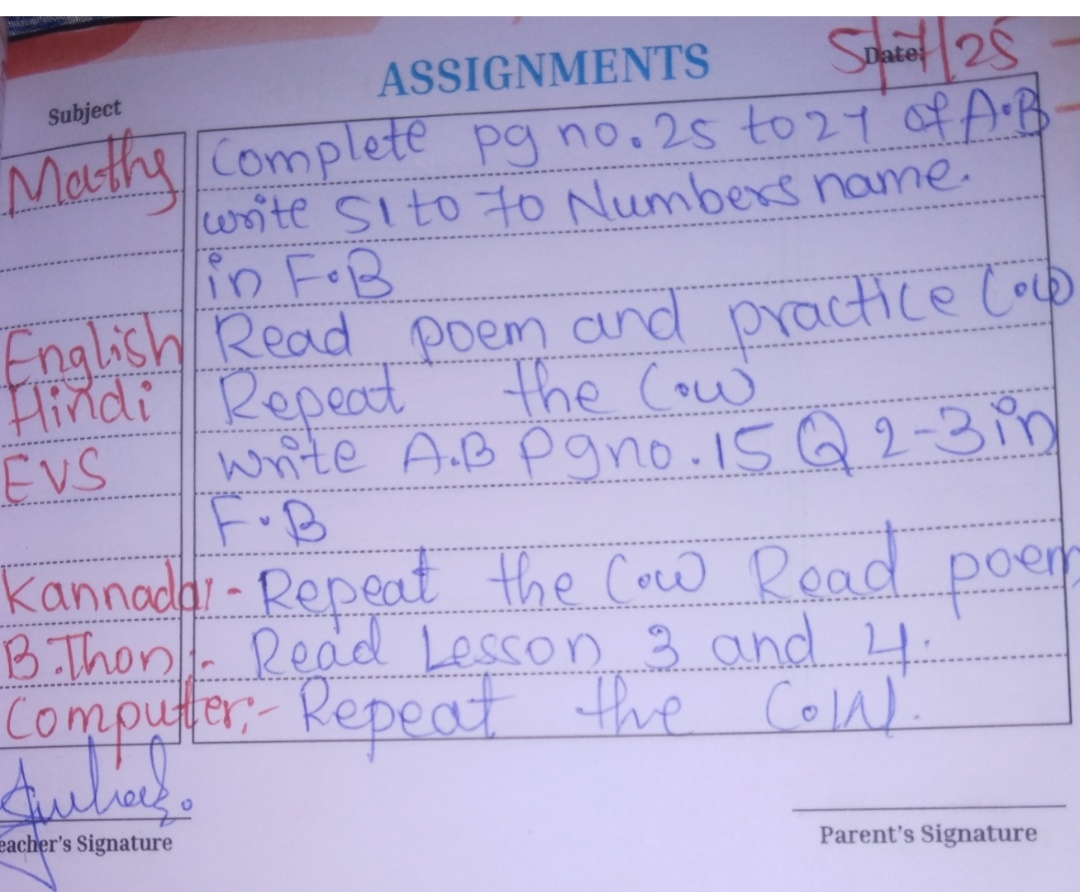 ASSIGNMENTS
Date: 5/7/25
Subject
Maths Complete pg no. 25 to 27 of A.B
write 51 to 70 Numbers name.
in F.B
English Read poem and practice C.w
Hindi Repeat the C.w
EVS write A.B Pg no. 15 Q 2-3 in
F.B
Kannada:- Repeat the C.w Read poem
B.Thon:- Read Lesson 3 and 4.
Computer:- Repeat the C.W.
eacher's Signature
Parent's Signature